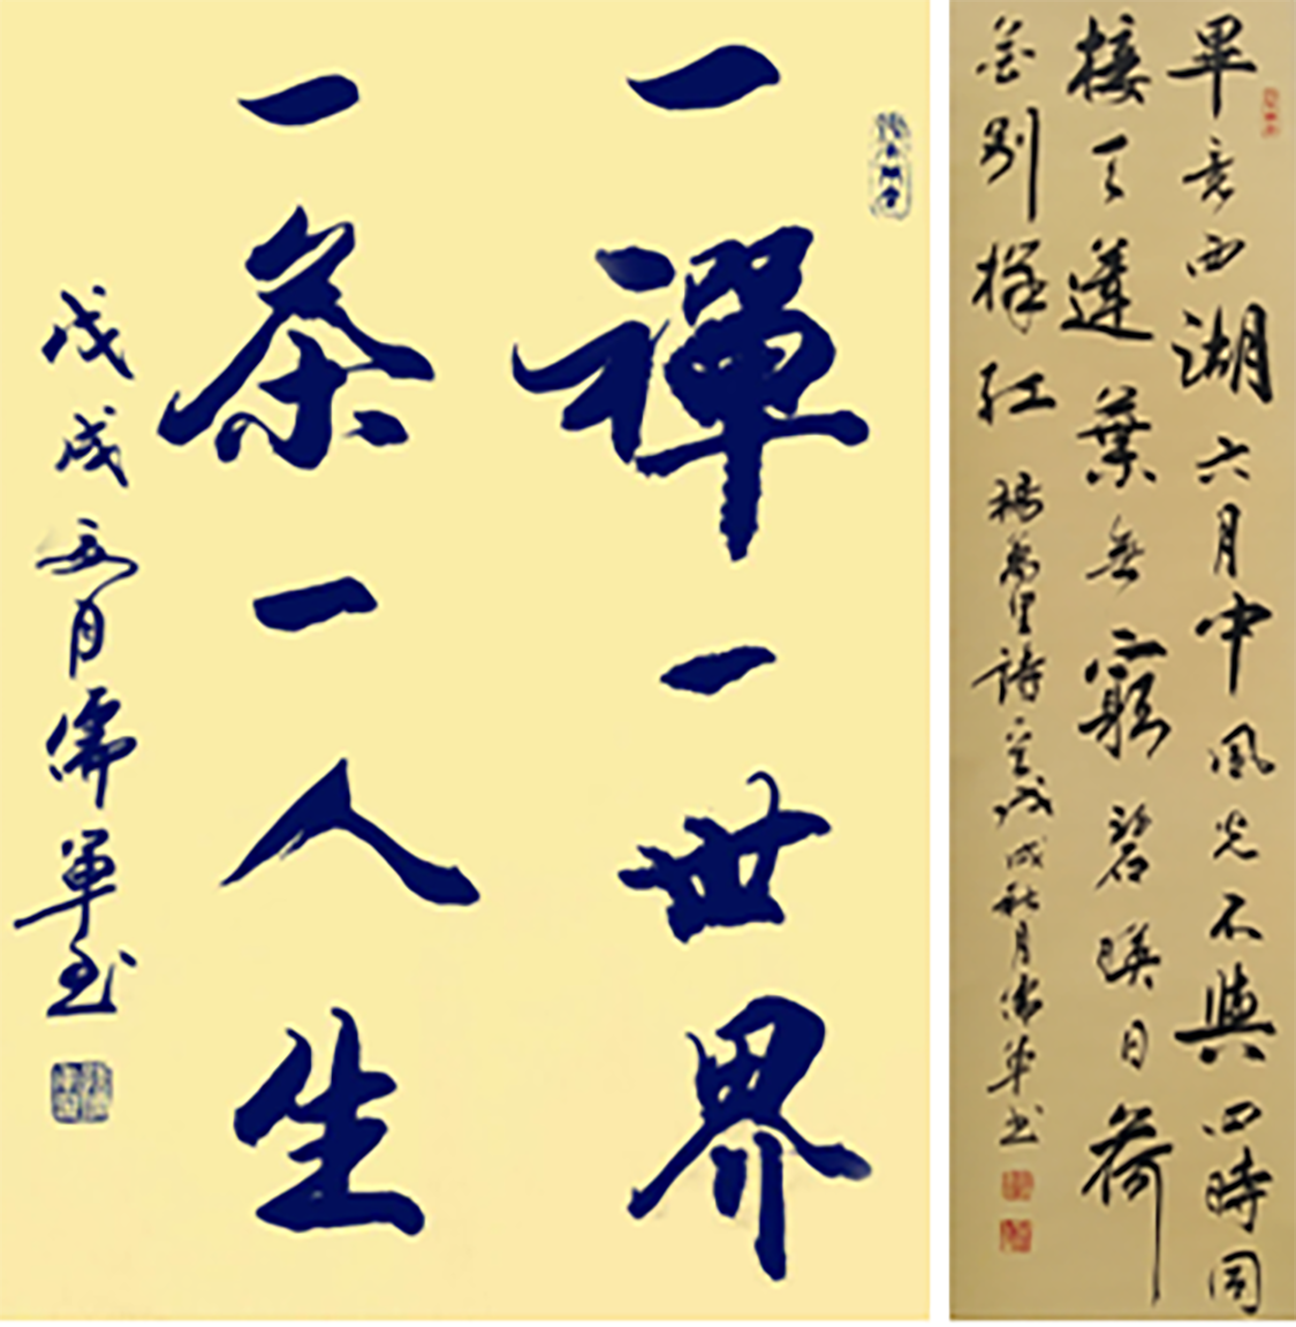 一禪一世界
一茶一人生
戊戌五月儒軍书
畢竟西湖六月中風光不與四時同
接天蓮葉無窮碧映日荷
花別樣紅 楊萬里詩一首戊戌秋月儒軍书